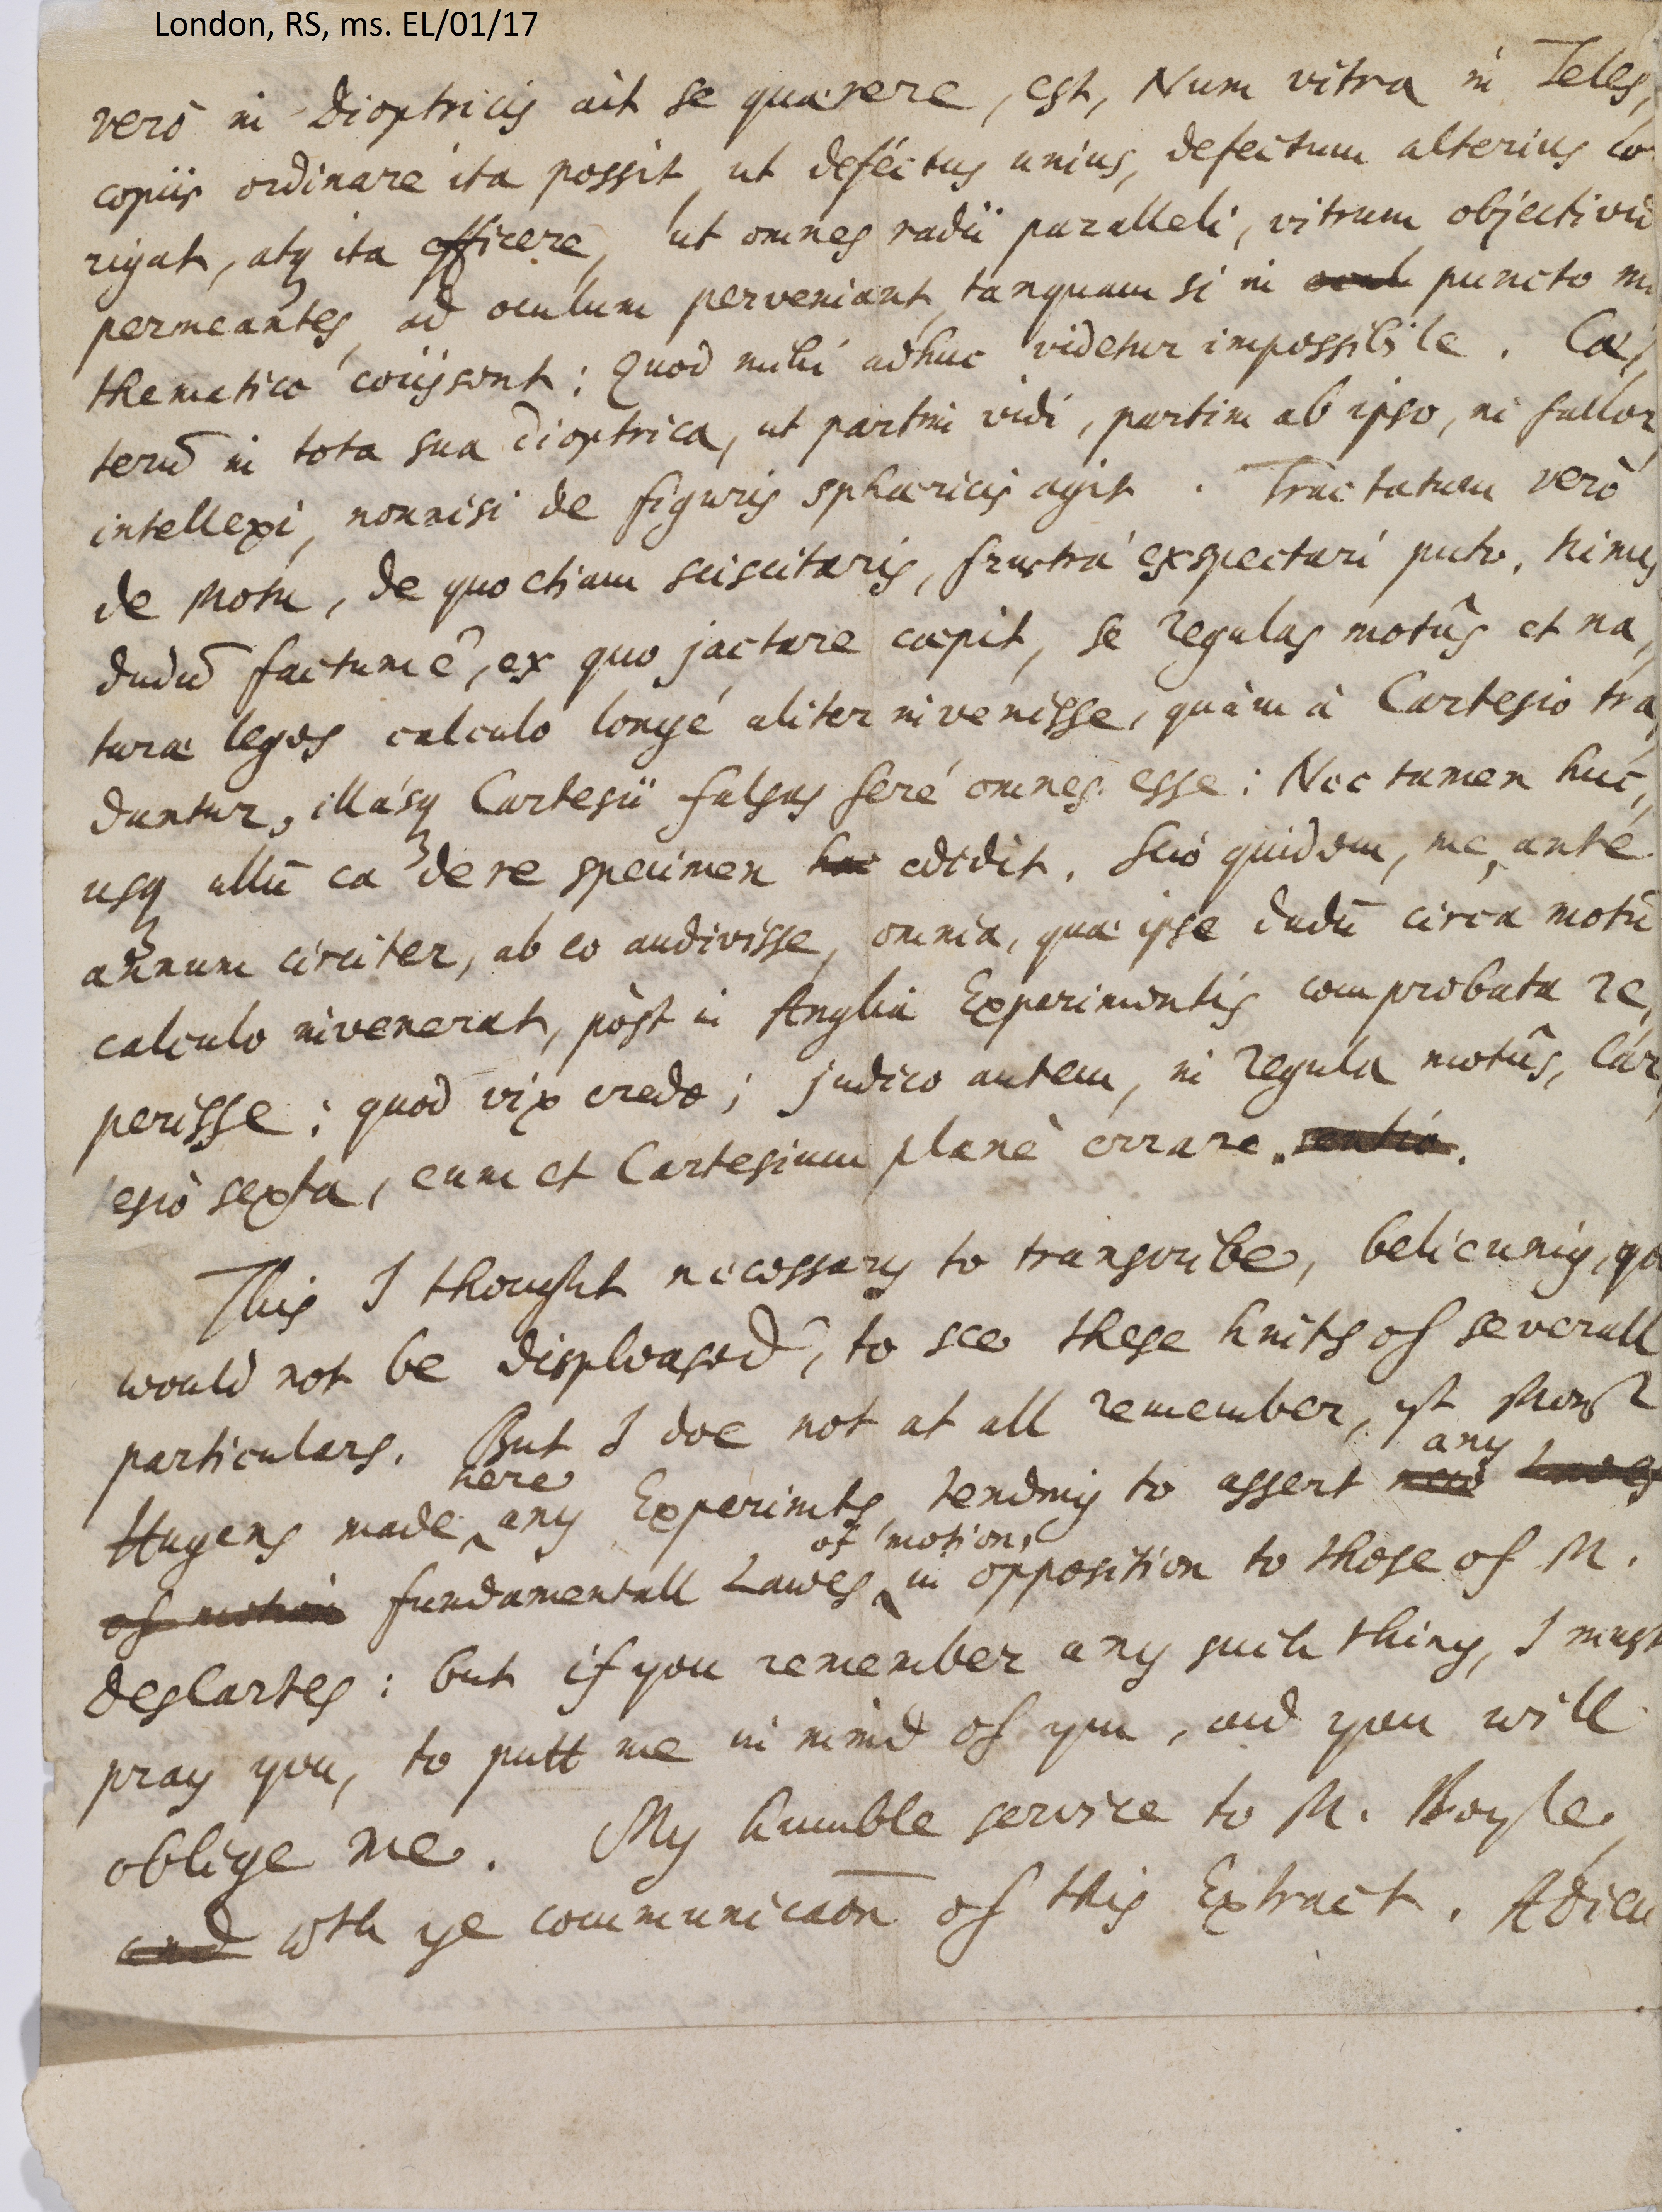 London, RS, ms. EL/01/17
verò in Dioptricis ait se quærere, est, Num vitra in Teles,
copiis ordinare ita possit, ut deféctus unius, defectum alterius co
rigat, atq ita efficere, ut omnes radii paralleli, vitrum objectivū
permeantes, ad oculum perveniant, tanquam si in puncto m
thematico coiissent: Quod mihi adhuc videtur impossibile. Cæ,
terū in tota sua Dioptrica, ut partim vidi, partim ab ipso, ni fallor,
intellexi, nonnisi de figuris sphæricis agit. Tractatum verò
de Motu, de quo etiam sciscitaris, frustrà exspectari puto. nimis
dudū factum ē, ex quo jactare cœpit, se regulas motûs et na,
turæ leges calculo longé aliter invenisse, quàm à Cartesio tra,
duntur, illásq Cartesii falsas feré omnes esse: Nec tamen huc,
usq ullū ea de re specimen edidit. Scio quidem, me, ante
annum circiter, ab eo audivisse, omnia, quæ ipse dudū circa motū
calculo invenerat, pòst in Anglia Experimentis comprobata re,
perisse: quod vix credo; judico autem, in regula motûs, Car,
tesiò sexta, eum et Cartesium planè errare.
This I thought necessary to transcribe, believing, yo
would not be displeased, to see these hints of severall
particulars. But I doe not at all remember, yt Monsr
Hugens made here any Experimts, tending to assert any
fundamentall Lawes of motion, in opposition to those of M.
desCartes: but if you remember any such thing, I must
pray you, to putt me in mind of ym, and you will
oblige me. My humble service to M. Boyle,
wth ye communicaōn of this Extract. Adieu